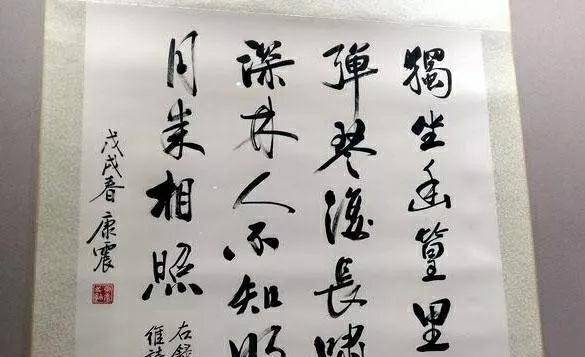 獨坐幽篁里
彈琴復長嘯
深林人不知明
月来相照
右錄
維詩
戊戌春 康震